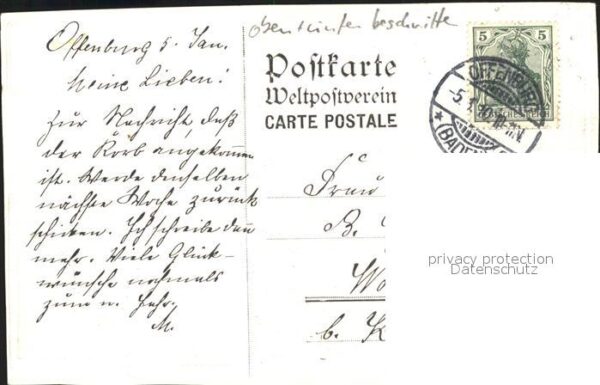 oben + unten beschnitten
Offenburg 5. Jan.
Meine Lieben!
Zur Nachricht, daß
der Korb angekommen
ist. Werde denselben
nächste Woche zurück
schicken. Ich schreibe dann
mehr. Viele Glück-
wünsche nochmals
zum n. Jahr.
M.
Postkarte
Weltpostverein
CARTE POSTALE
5 5
OFFENBURG
(BADEN)
Frau
B.
Wo
b. K
privacy protection
Datenschutz